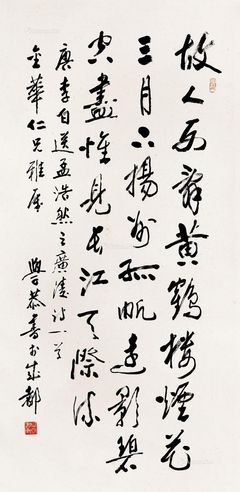 故人西辭黃鶴樓煙花
三月下揚州孤帆遠影碧
空盡惟見長江天際流
唐李白送孟浩然之廣陵詩一首
金華仁兄雅屬
學恭書於成都